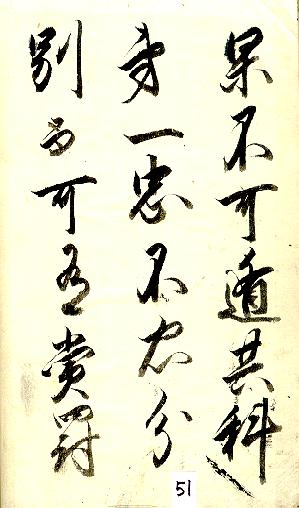 果不可遁其科
第一忠不忠分
別而可有賞罰
51